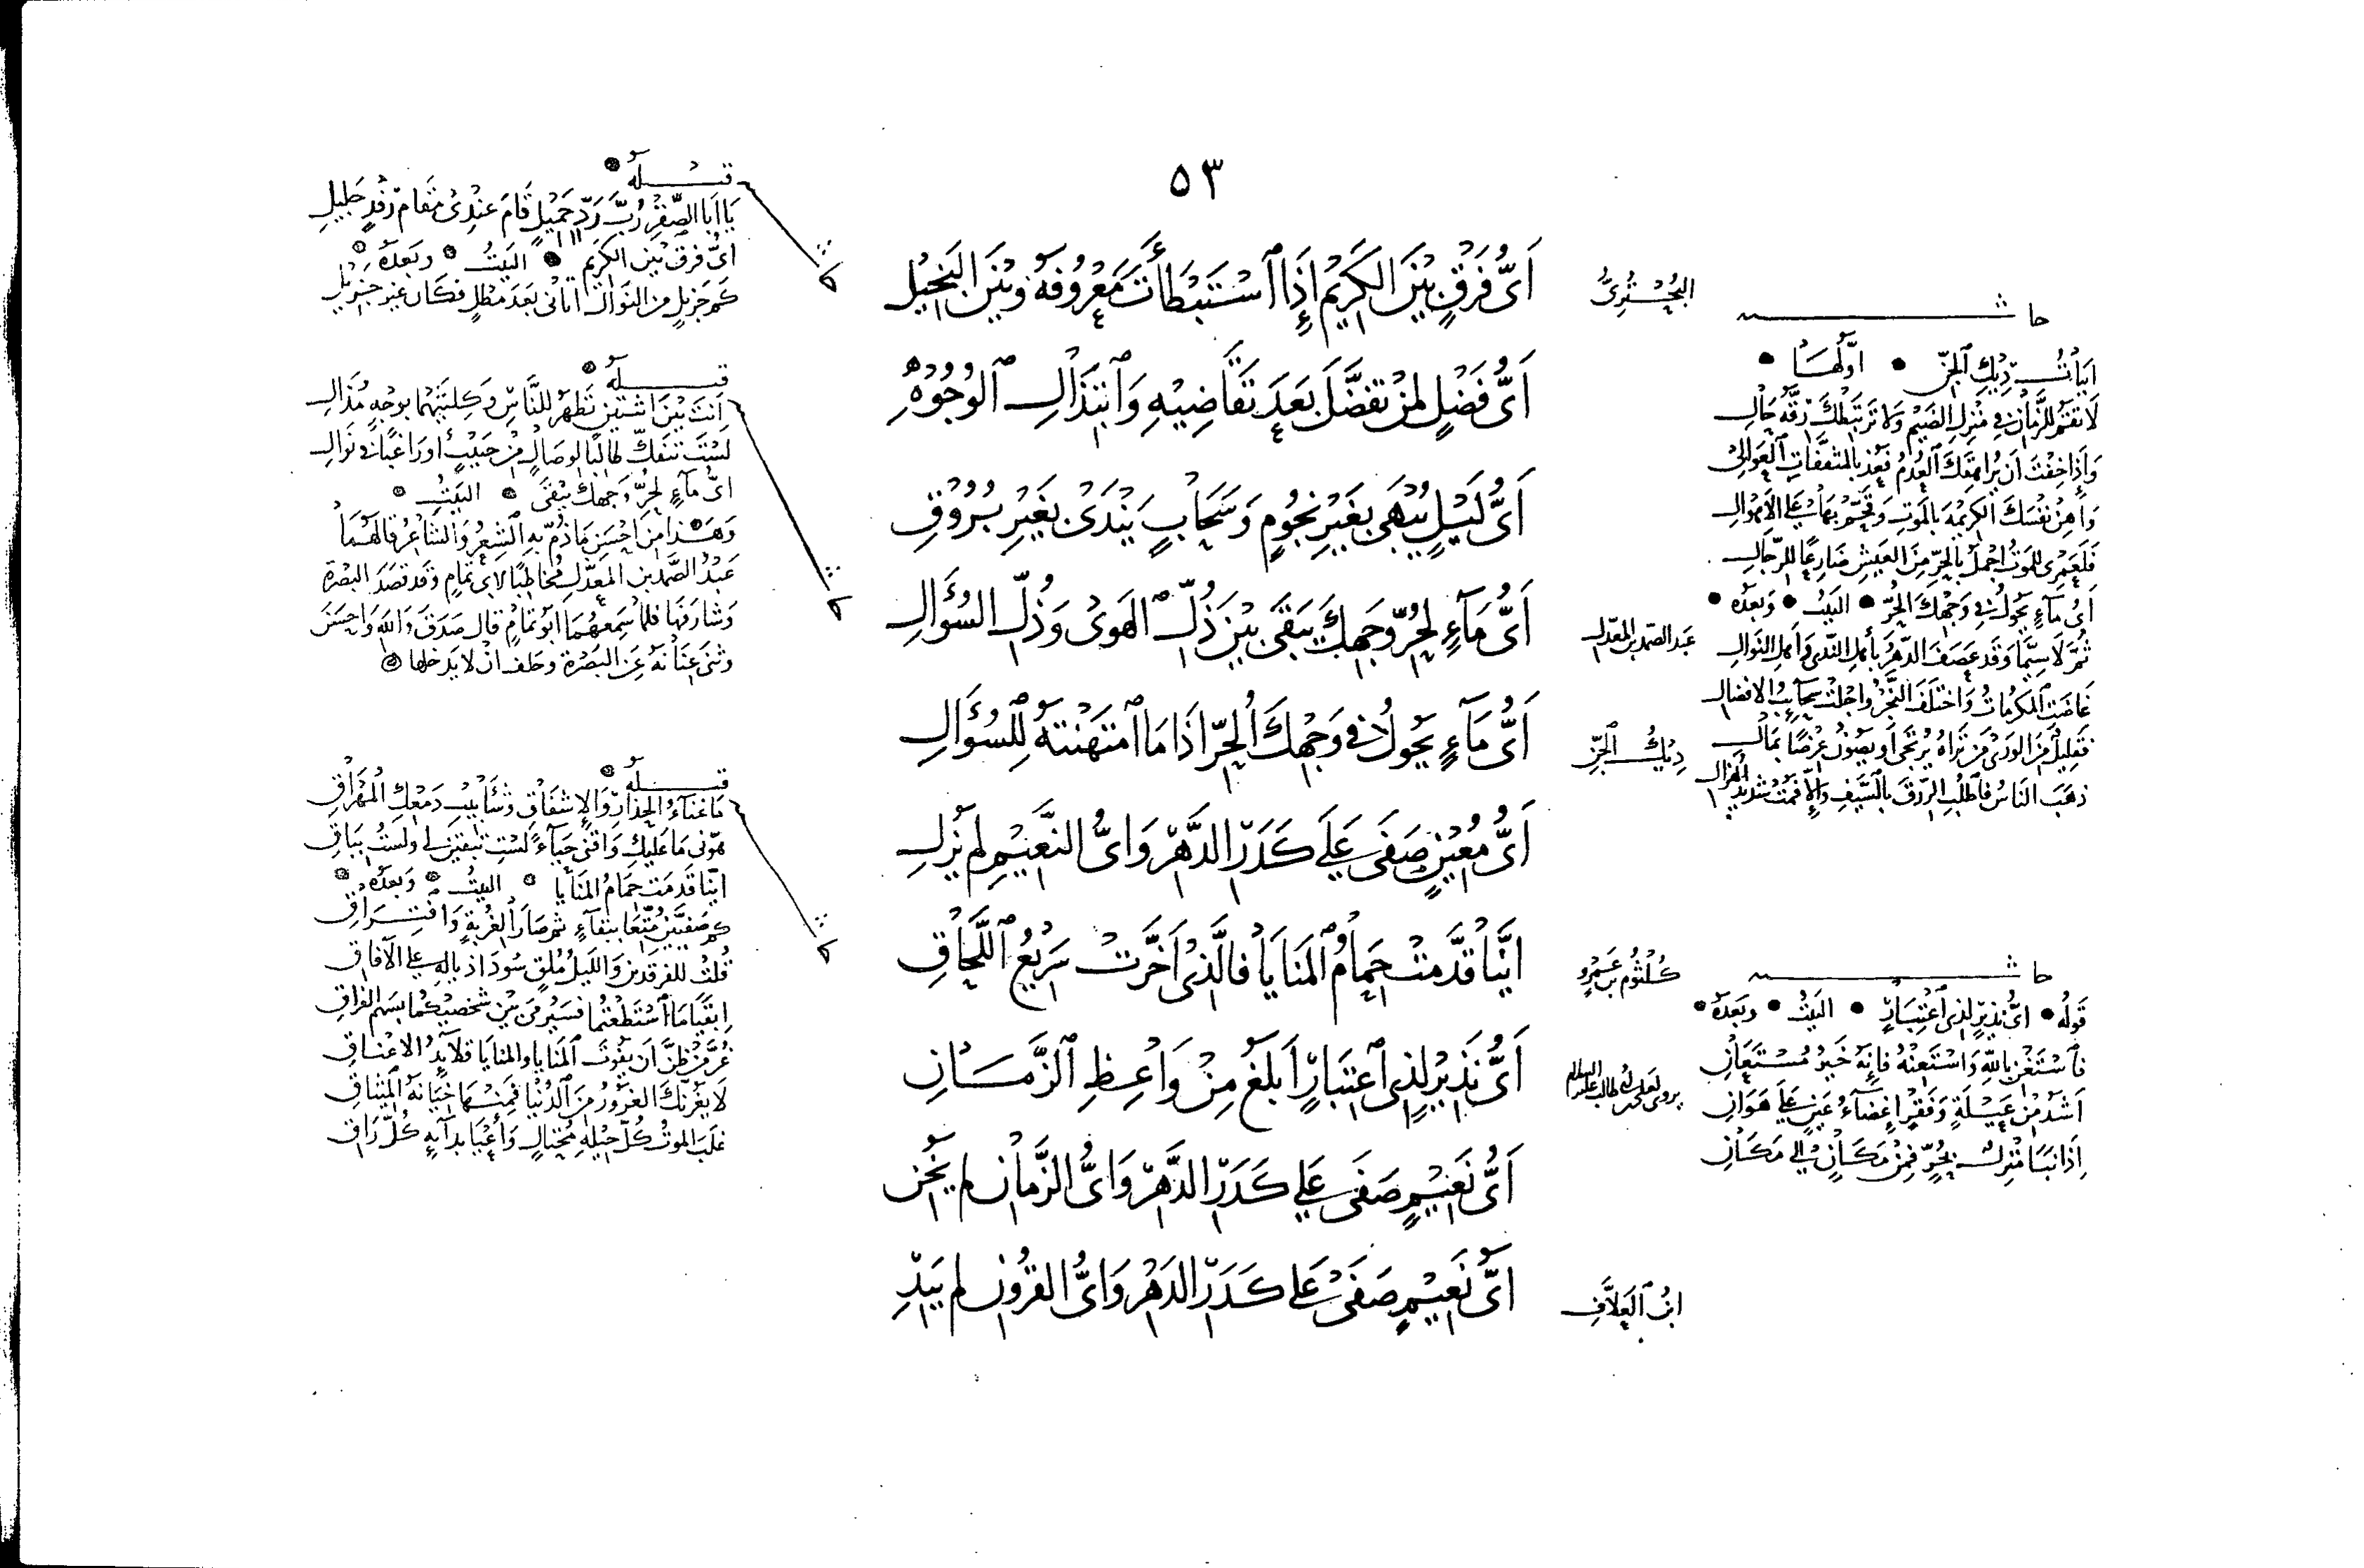 ٥٣
البُحْتُرِىُّ
اَىُّ فَرْقٍ بَيْنَ الكَرِيْمِ اِذَا ٱسْتَبْطَأْتَ مَعْرُوفَهُ وَبَيْنَ البَخِيْلِ
اَىُّ فَضْلٍ لِمَنْ تَفَضَّلَ بَعْدَ تَقَاضِيْهِ وَٱبْتِذَالِ ٱلوُجُوْهِ
اَىُّ لَيْلٍ يَبْهَى بِغَيْرِ نُجُوْمٍ وَسَحَابٍ يَنْدَى بِغَيْرِ بُرُوْقِ
عَبْدُ الصَّمَدِ بن المعَذَّل
اَىُّ مَآءٍ لِحُرِّ وَجْهِكَ يَبْقَى بَيْنَ ذُلِّ ٱلهَوَى وَذُلِّ السُؤَالِ
دِيْكُ الجِنِّ
اَىُّ مَآءٍ يَجُولُ فِى وَجْهِكَ ٱلحُرِّ اِذَا مَا ٱمْتَهَنْتَهُ لِلسُؤَالِ
اَىُّ مُعِيْنٍ صَفَى عَلَى كَدَرِ الدَّهْرِ وَاَىُّ النَّعِيْمِ لَم يَزُلِ
كُلْثُوم بن عَمْرٍو
اَيَّنَا قَدَّمَتْ حِمَامُ ٱلمَنَايَا فَالَّذِى اَخَّرَتْ سَرِيْعُ ٱللَّحَاقِ
يروى لعلى بن ابى طالب عليه السلام
اَىُّ نَذِيْرٍ لِذِى ٱعْتِبَارٍ اَبْلَغُ مِنْ وَاعِظِ ٱلزَّمَانِ
اَىُّ نَعِيْمٍ صَفَى عَلَى كَدَرِ الدَّهْرِ وَاَىُّ الزَّمَانِ لَم يَخُنِ
ابنُ ٱلعَلَّافِ
اَىُّ نَعِيْمٍ صَفَى عَلَى كَدَرِ الدَهْرِ وَاَىُّ القُرُونِ لَم يَبِدِ
حاشـــــــية
اَبْيَاتُ دِيْكِ ٱلجِنِّ • اَوَّلُهَا •
لَا تَقُمْ لِلزَّمَانِ فِى مَنْزِلِ الضَّيْمِ وَلَا تَرْتَبِطْكَ رِقَّةُ حَالِ
وَاِذَا خِفْتَ اَنْ يُرَاهِقَكَ ٱلعُدْمُ فَعُذْ بِالمُثَقَّفَاتِ ٱلعَوَالِى
وَاَهِنْ نَفْسَكَ الكَرِيْمَةَ بِالمَوتِ وَقَحِّمْ بِهَا عَلَى الاَهْوَالِ
فَلَعَمْرِى لَلمَوْتُ اَجْمَلُ بِالحُرِّ مِنَ العَيْشِ ضَارِعًا لِلرِّجَالِ
اَىُّ مَآءٍ يَجُولُ فِى وَجْهِكَ الحُرِّ • البَيْتُ • وَبَعْدَهُ •
ثُمَّ لَا سِيَّمَا وَقَد عَصَفَ الدَّهْرُ بِأَهْلِ النَّدَى وَاَهْلِ النَوَالِ
غَاضَتِ ٱلمَكْرُمَاتُ وَاخْتَلَفَ النَّجْرُ وَاَجْلَتْ سَحَايِبُ الاِفْضَالِ
فَقَلِيْلٌ مِنَ الوَرَى مَنْ تَرَاهُ يُرْتَجَى اَو يَصُوْنُ عِرْضًا بِمَالِ
ذَهَبَ النَاسُ فَاطْلُبِ الرِّزْقَ بِالسَّيْفِ وَاِلَّا فَمُتْ شَدِيْدَ الهُزَالِ
حاشـــــــية
قَولُهُ • اَىُّ نَذِيْرٍ لِذِى ٱعْتِبَارٍ • البَيْتُ • وَبَعْدَهُ •
فَٱسْتَغْنِ بِاللهِ وَاسْتَعِنْهُ فَاِنَّهُ خَيْرُ مُسْتَعَانِ
اَشَدُّ مِنْ عَيْلَةٍ وَفَقْرٍ اِغْضَآءُ عَيْنٍ عَلَى هَوَانِ
اِذَا نَبَا مَنْزِلٌ بِحُرٍّ فَمِنْ مَكَانٍ اِلَى مَكَانِ
قبـــــله •
يَا اَبَا الصَّقْرِ رُبَّ رَدٍّ جَمِيْلٍ قَامَ عِنْدِى مَقَامَ رِفْدٍ جَلِيْلِ
اَىُّ فَرْقٍ بَيْنَ الكَرِيْمِ • البَيْتُ • وَبَعْدَهُ •
كَم جَزِيْلٍ مِنَ النَوَالِ اَتَانِى بَعْدَ مَطْلٍ فَكَانَ غَيْرَ جَزِيْلِ
قبـــــله •
اَنْتَ بَيْنَ اثْنَتَيْنِ تَظْهَرُ لِلنَّاسِ وَكِلْتَيْهِمَا بِوَجْهٍ مُذَالِ
لَسْتَ تَنْفَكُّ طَالِبًا لِوِصَالٍ مِنْ حَبِيْبٍ اَو رَاغِبًا فِى نَوَالِ
اَىُّ مَآءٍ لِحُرِّ وَجْهِكَ يَبْقَى • البَيْتُ •
وَهَذَا مِنْ اَحْسَنِ مَا ذُمَّ بِهِ الشِعْرُ وَالشَاعِرُ قَالَهُمَا
عَبْدُ الصَّمَدِ بن المُعَذَّلِ مُخَاطِبًا لِاَبِى تَمَامٍ وَقَد قَصَدَ البَصْرَةَ
وَشَارَفَهَا فَلَمَّا سَمِعَهُمَا اَبُو تَمَامٍ قَالَ صَدَقَ وَاللهِ وَاَحْسَنَ
وَثَنَى عِنَانَهُ عَنِ البَصْرَةِ وَحَلَفَ اَنْ لَا يَدْخُلَهَا
قبـــــله •
مَا غَنَآءُ الحِذَارِ وَالاِشْفَاقِ وَشَآبِيْبِ دَمْعِكِ المُهْرَاقِ
هَوِّنِى مَا عَلَيْكِ وَاقْنَى حَيَآءً لَسْتِ تَبْقَيْنَ لِى وَلَسْتُ بِبَاقِ
اَيُّنَا قَدَّمَتْ حِمَامُ المَنَايَا • البَيْتُ • وَبَعْدَهُ •
كَم صَفِيَّيْنِ مُتِّعَا بِبَقَآءٍ ثُمَّ صَارَا لِغُرْبَةٍ وَافْتِرَاقِ
قُلْتُ لِلفَرْقَدَيْنِ وَاللَيْلُ مُلْقٍ سُودَ اَذْيَالِهِ عَلَى الآفَاقِ
اِبْقَيَا مَا ٱسْتَطَعْتُمَا فَسَيُرْمَى بَيْنَ شَخْصَيْكُمَا بِسَهْمِ الفِرَاقِ
غُرَّ مَنْ ظَنَّ اَنْ يَفُوتَ ٱلمَنَايَا وَالمَنَايَا قَلَايِدُ الاَعْنَاقِ
لَا يَغُرَّنْكَ الغَرُوْرُ مِنَ ٱلدُنْيَا فَمِنْهَا خِيَانَةُ المِيْثَاقِ
غَلَبَ المَوتُ كُلَّ حِيْلَةِ مُحْتَالٍ وَاَعْيَا بِدَآئِهِ كُلَّ رَاقِ